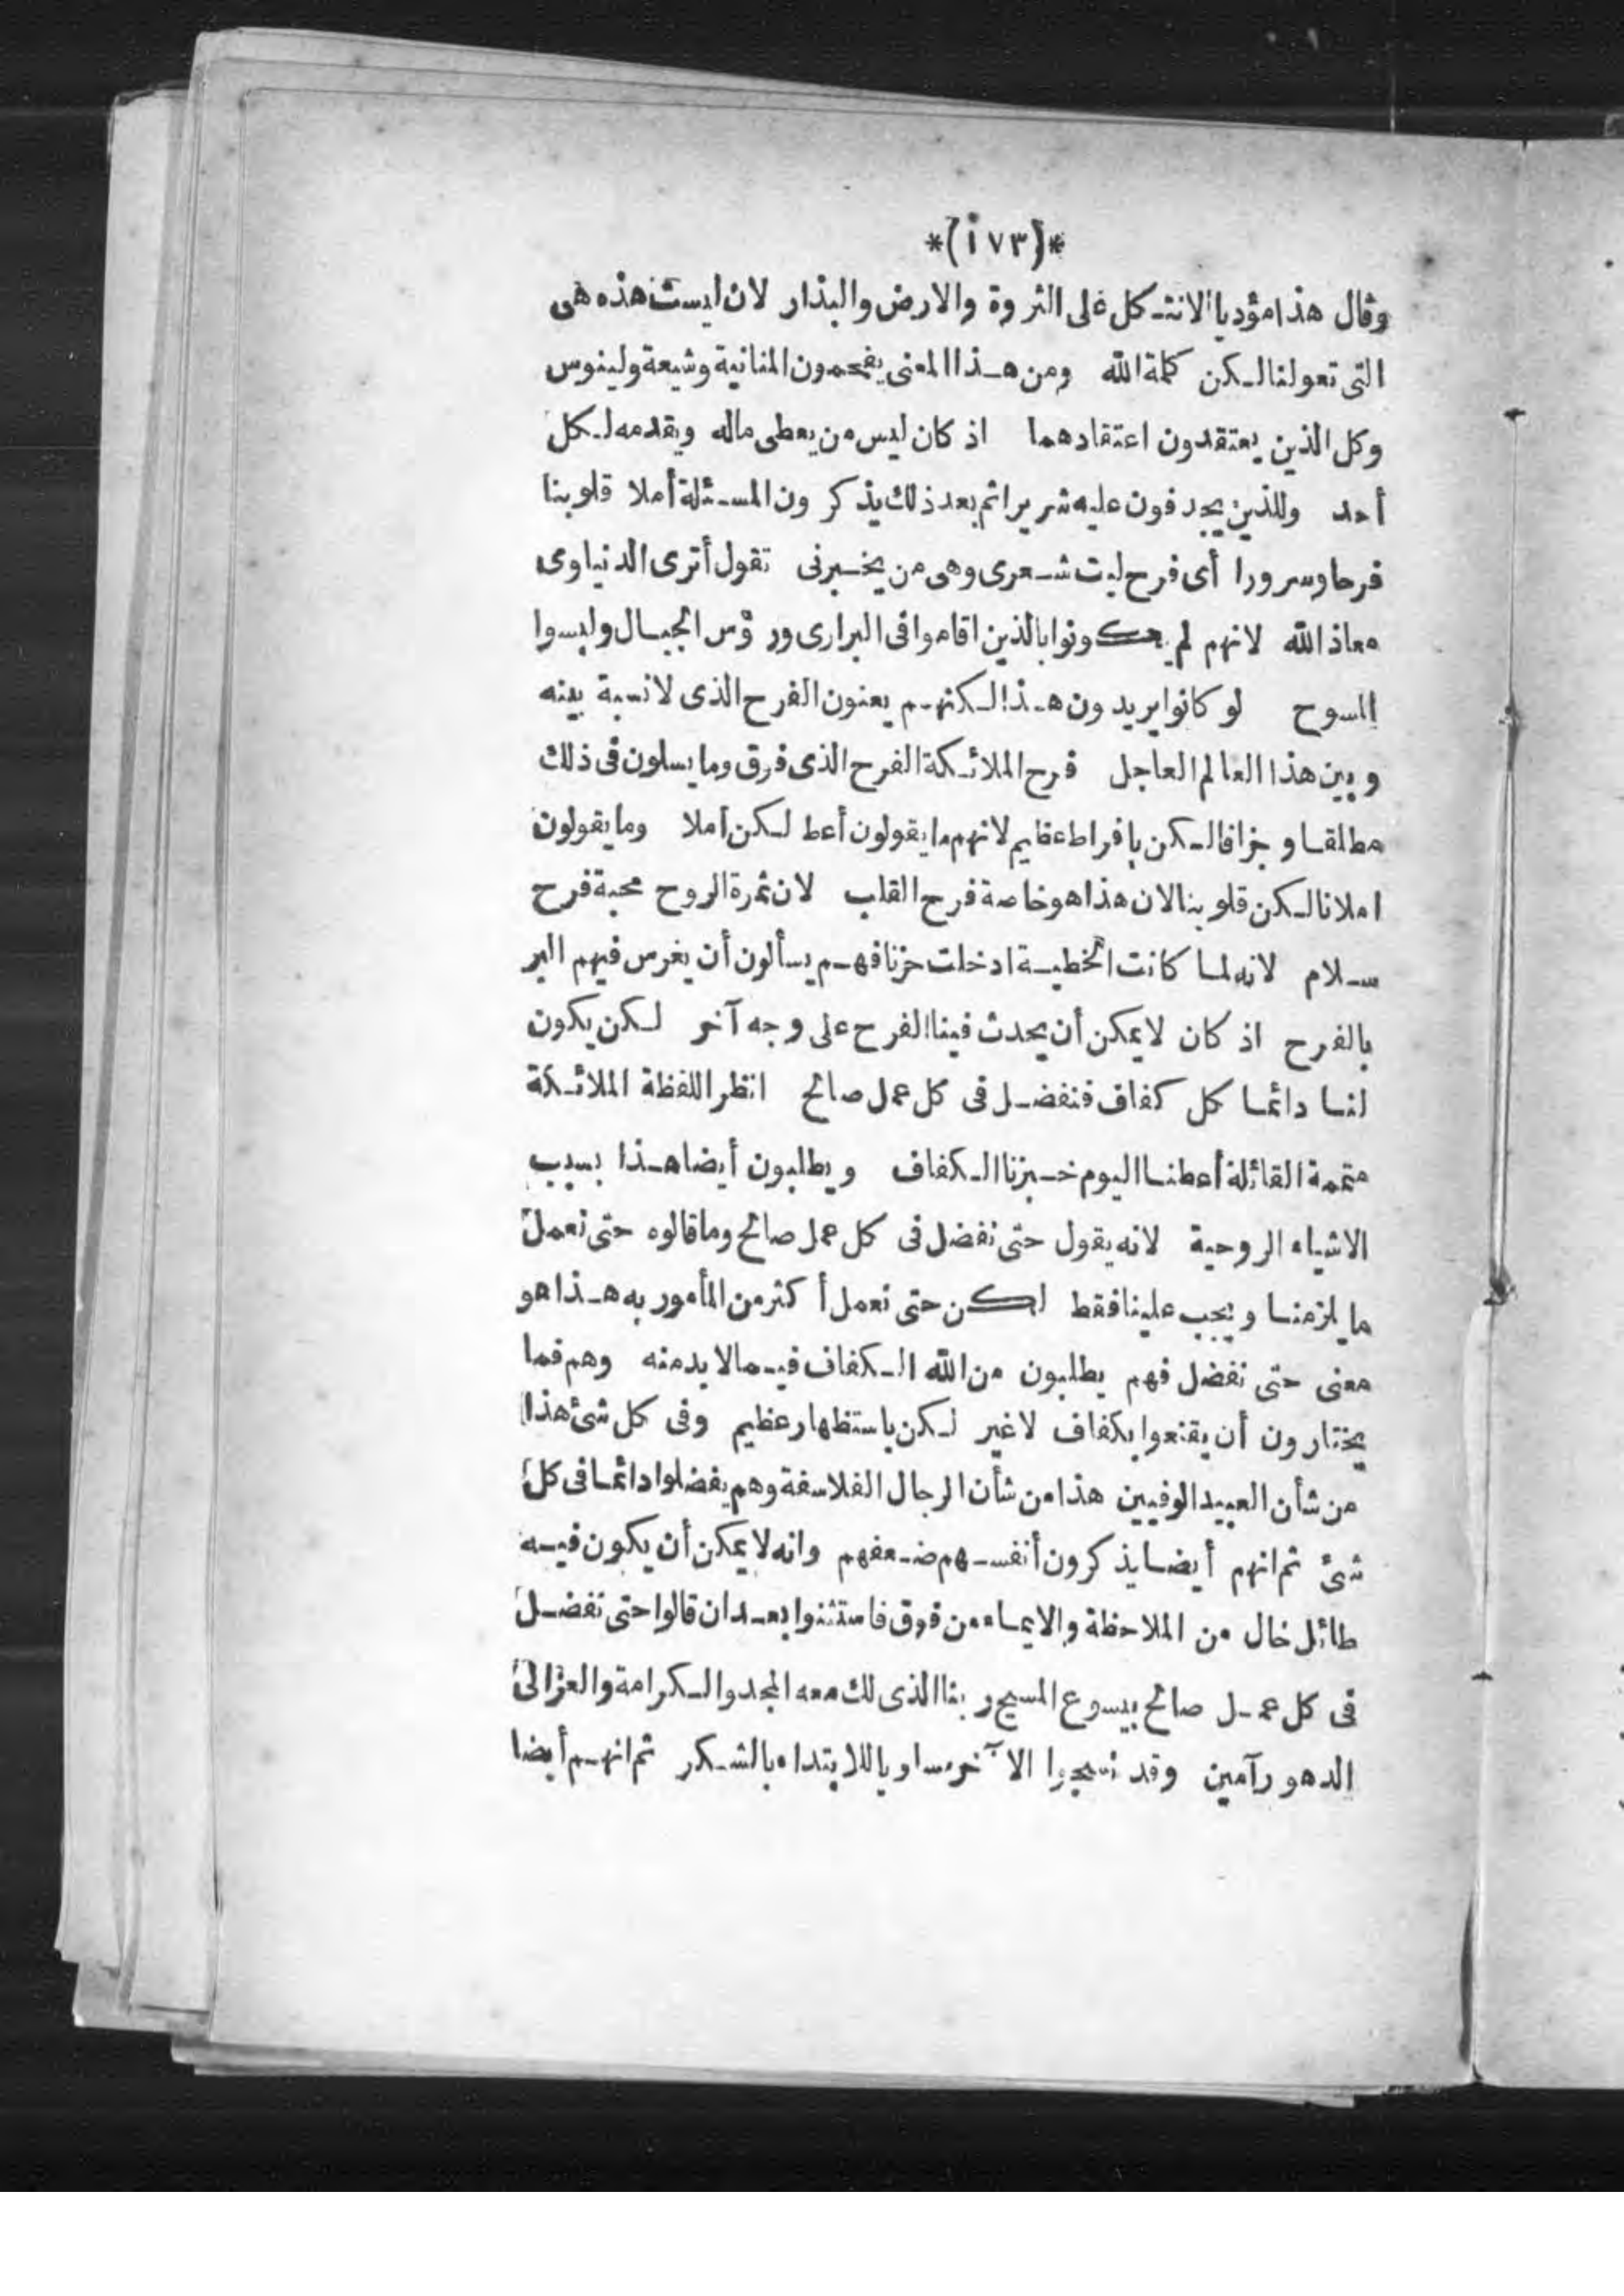 *(١٧٣)*
وقال هذا مؤدبا الا نتكل على الثروة والارض والبذار لان ليست هذه هى
التى تعولنا لكن كلمة الله ومن هذا المعنى يفحمون المنانية وشيعة ولينوس
وكل الذين يعتقدون اعتقادهما اذ كان ليس من يعطى ماله ويقدمه لكل
أحد وللذين يجدفون عليه شريرا ثم بعد ذلك يذكرون المسئلة أملا قلوبنا
فرحا وسرورا أى فرح ليت شعرى وهى من يخبرنى تقول أترى الدنياوى
معاذ الله لانهم لم يكونوا بالذين اقاموا فى البرارى ورؤس الجبال ولبسوا
المسوح لو كانوا يريدون هذا لكنهم يعنون الفرح الذى لا نسبة بينه
وبين هذا العالم العاجل فرح الملائكة الفرح الذى فوق وما يسلون فى ذلك
مطلقا وجزافا لكن بافراط عظيم لانهم ما يقولون أعط لكن أملا وما يقولون
املانا لكن قلوبنا لان هذا هو خاصة فرح القلب لان ثمرة الروح محبة فرح
سلام لانه لما كانت الخطية ادخلت حزنا فهم يسألون أن يغرس فيهم البر
بالفرح اذ كان لا يمكن أن يحدث فينا الفرح على وجه آخر لكن يكون
لنا دائما كل كفاف فنفضل فى كل عمل صالح انظر اللفظة الملائكة
متممة القائلة أعطنا اليوم خبزنا الكفاف ويطلبون أيضا هذا بسبب
الاشياء الروحية لانه يقول حتى نفضل فى كل عمل صالح وما قالوه حتى نعمل
ما يلزمنا ويجب علينا فقط لكن حتى نعمل أكثر من المأمور به هذا هو
معنى حتى نفضل فهم يطلبون من الله الكفاف فيما لا بد منه وهم فما
يختارون أن يقنعوا بكفاف لا غير لكن باستظهار عظيم وفى كل شئ هذا
من شأن العبيد الوفيين هذا من شأن الرجال الفلاسفة وهم يفضلوا دائما فى كل
شئ ثم انهم أيضا يذكرون أنفسهم ضعفهم وانه لا يمكن أن يكون فيه
طائل خال من الملاحظة والايماء من فوق فاستثنوا بعد ان قالوا حتى نفضل
فى كل عمل صالح بيسوع المسيح ربنا الذى لك معه المجد والكرامة والعز الى
الدهور آمين وقد نسجوا الآخر مساويا للابتداء بالشكر ثم انهم أيضا